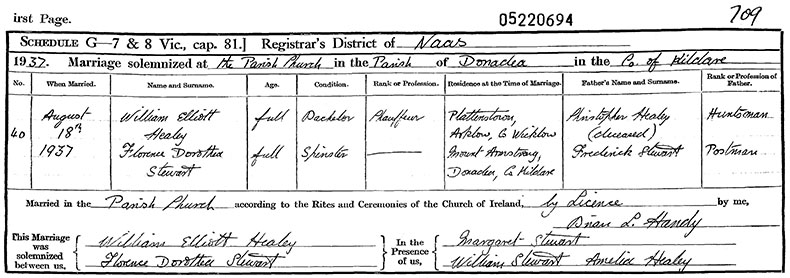 irst Page. 05220694 709
SCHEDULE G—7 & 8 Vic., cap. 81.] Registrar's District of Naas
1937. Marriage solemnized at the Parish Church in the Parish of Donadea in the Co. of Kildare
No. When Married. Name and Surname. Age. Condition. Rank or Profession. Residence at the Time of Marriage. Father's Name and Surname. Rank or Profession of Father.
40 August 18th 1937
William Elliott Healey full Bachelor Chauffeur Plattenstown, Arklow, Co Wicklow Christopher Healey (deceased) Huntsman
Florence Dorothea Stewart full Spinster — Mount Armstrong, Donadea, Co Kildare Frederick Stewart Postman
Married in the Parish Church according to the Rites and Ceremonies of the Church of Ireland, by Licence by me,
Brian L. Handy
This Marriage was solemnized between us, { William Elliott Healey
Florence Dorothea Stewart } In the Presence of us, { Margaret Stewart
William Stewart Amelia Healey